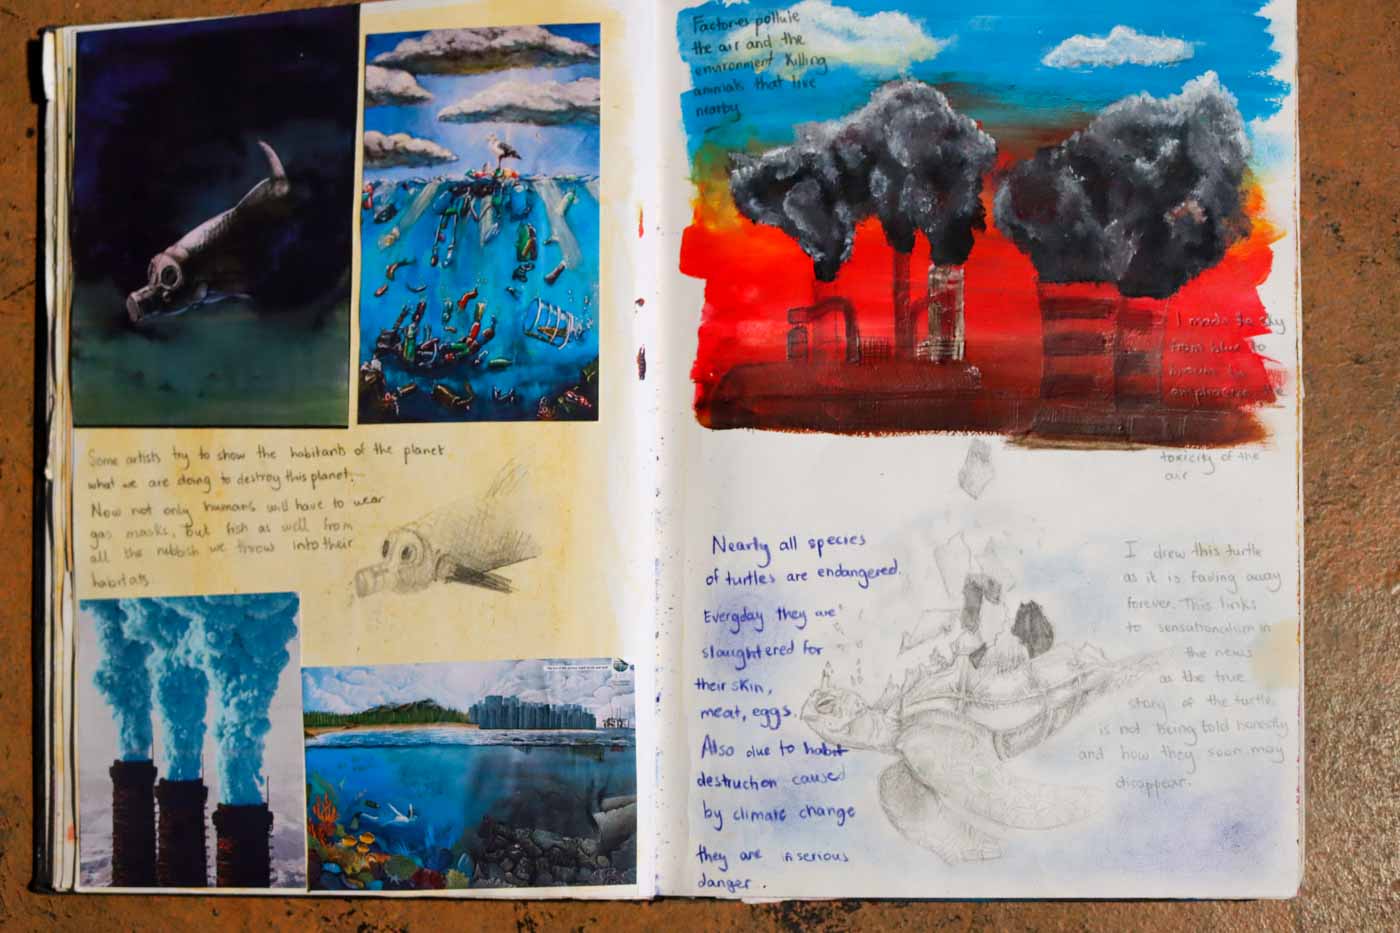 Some artists try to show the habitants of the planet
what we are doing to destroy this planet.
Now not only humans will have to wear
gas masks, but fish as well from
all the rubbish we throw into their
habitats
Factories pollute
the air and the
environment killing
animals that live
nearby
I made to sky
from blue to
toxicity of the
air
Nearly all species
of turtles are endangered.
Everyday they are
slaughtered for
their skin,
meat, eggs.
Also due to habit
destruction caused
by climate change
they are in serious
danger.
I drew this turtle
as it is fading away
forever. This links
to sensationalism in
the news
as the true
story of the turtles
is not being told honestly
and how they soon may
disappear.